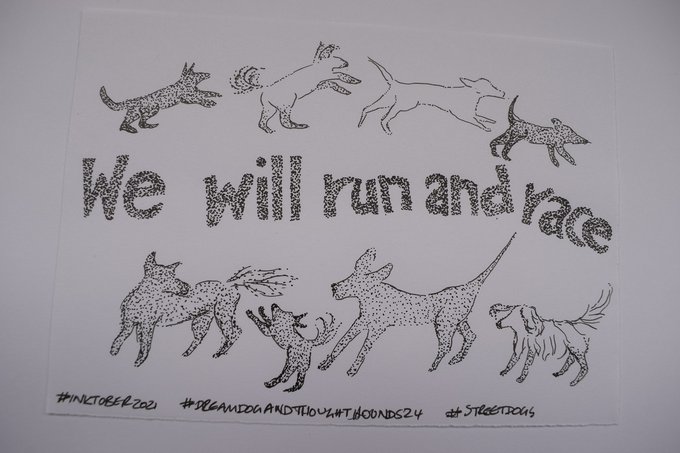 We will run and race
#INKTOBER2021 #DREAMDOGANDTHOUGHTHOUNDS24 #STREETDOGS